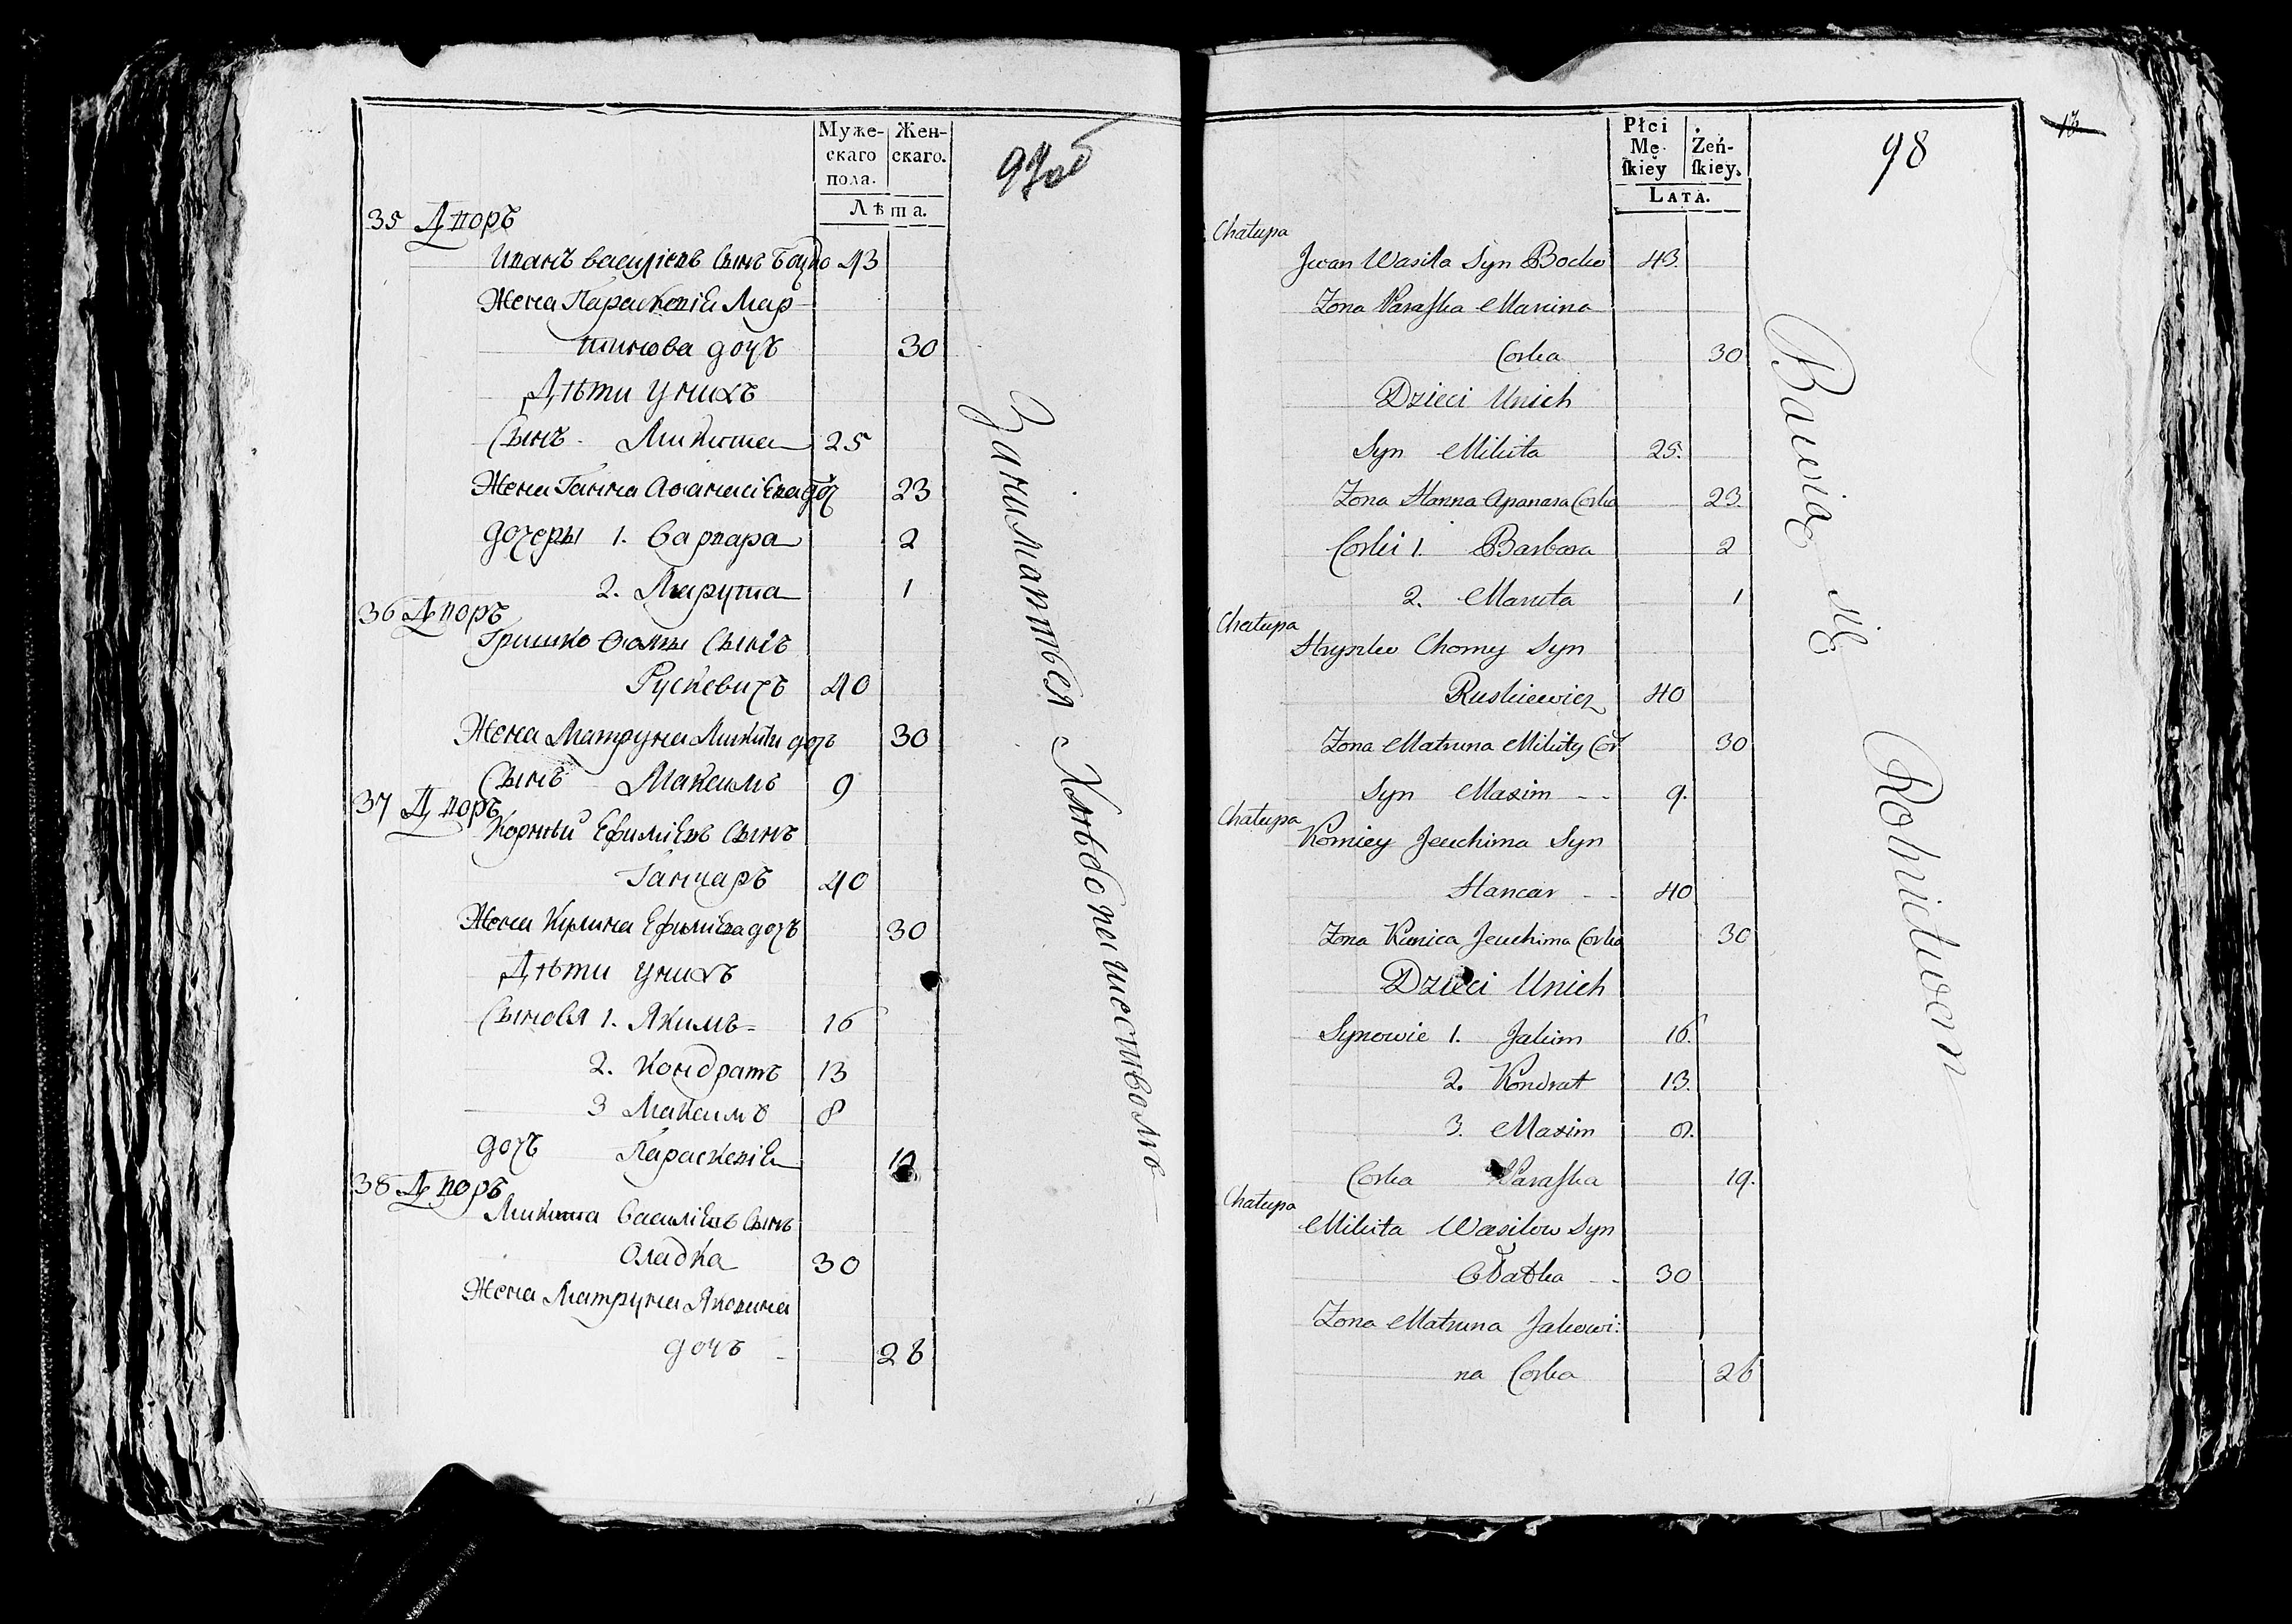 Муже- Жен-
скаго скаго.
пола.
Лѣта.
97об
35 Дворъ
Иванъ Василіевъ Сынъ Боцко 43
Жена Параскевія Мар-
тинова дочь 30
Дѣти у нихъ
Сынъ Микита 25
Жена Ганна Аѳанасіева доч 23
дочеры 1. Варвара 2
2. Марута 1
36 Дворъ
Гришко Ѳомы Сынъ
Рускевичъ 40
Жена Матруна Микиты дочь 30
Сынъ Максимъ 9
37 Дворъ
Корній Ефиміевъ Сынъ
Ганчаръ 40
Жена Кулина Ефиміева дочь 30
Дѣти у нихъ
Сыновя 1. Якимъ 16
2. Кондратъ 13
3 Максимъ 8
дочь Параскевія
38 Дворъ
Микита Василіевъ Сынъ
Оладка 30
Жена Матруна Яковина
дочь 28
Занимаются Хлѣбопашествомъ
Płci Żeń-
Mę- skiey.
skiey
LATA.
98
13
Chałupa
Jwan Wasila Syn Bocko 43.
Zona Paraska Marcina
Corka 30
Dzieci Unich
Syn Mikita 25.
Zona Hanna Apanasa Corka 23.
Corki 1. Barbara 2
2. Maruta 1
Chałupa
Hryszko Chomy Syn
Ruskiewicz 40
Zona Matruna Mikity Cor 30
Syn Maxim - - 9.
Chałupa
Korniey Jeuchima Syn
Hancar - - 40
Zona Jeuchima Corka 30
Dzieci Unich
Synowie 1. Jakim 16.
2. Kondrat 13.
3. Maxim 8.
Corka Paraska 19.
Chałupa
Mikita Wasilow Syn
30
Zona Matruna Jakowi:
na Corka 28
Bawią się Rolnictwem